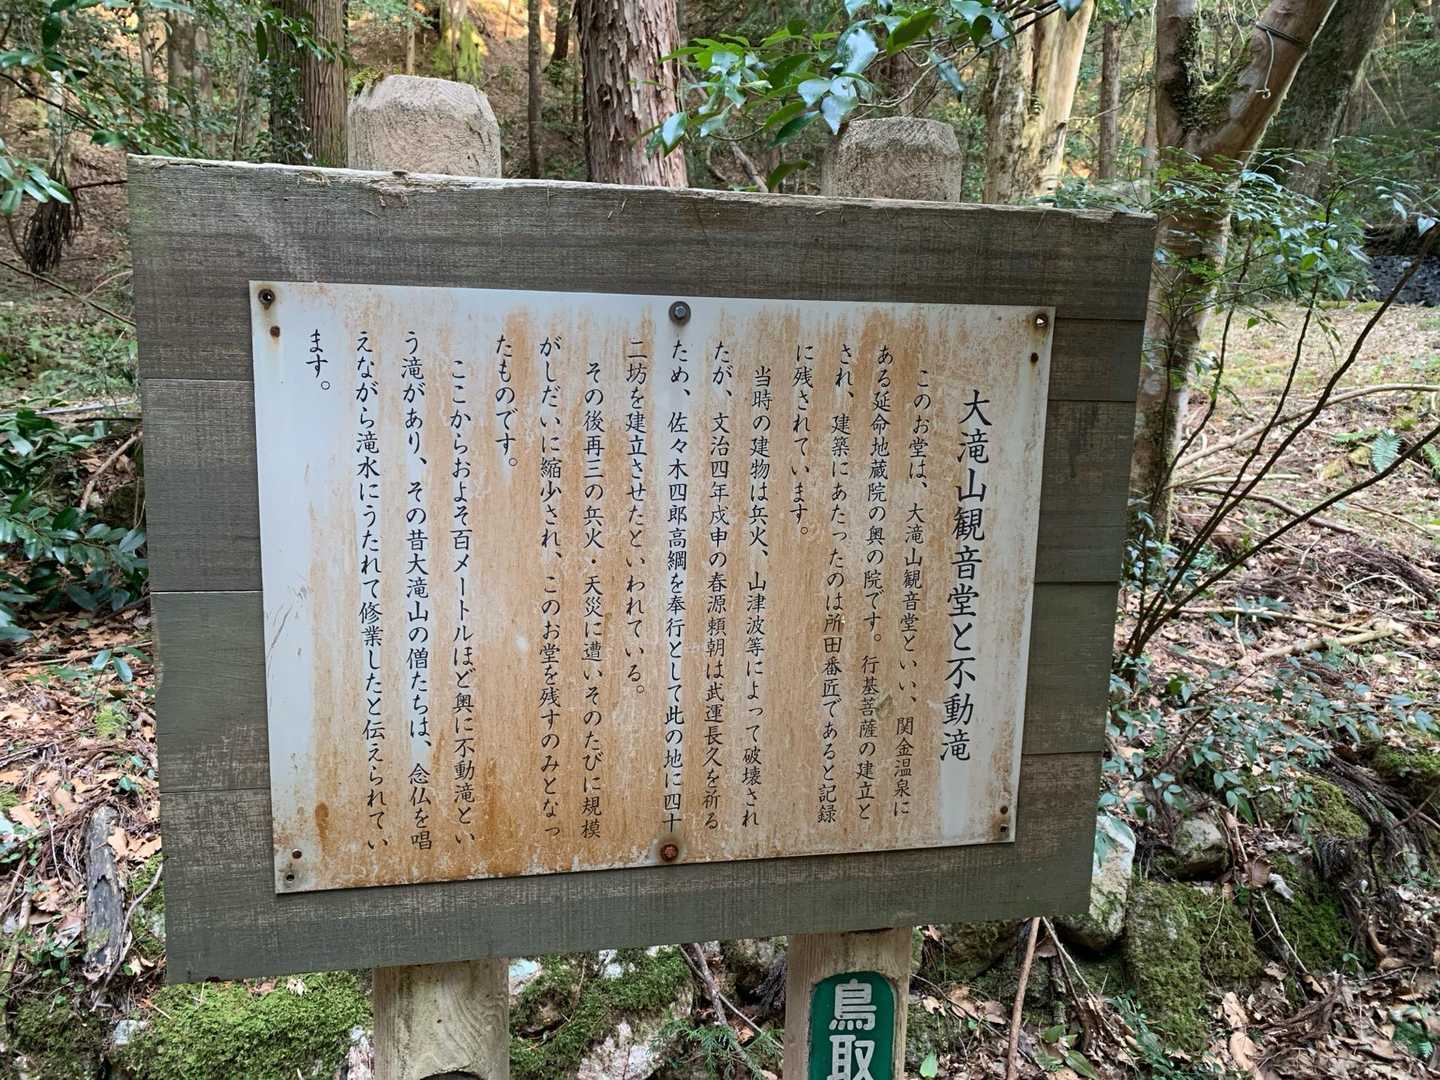 大滝山観音堂と不動滝
このお堂は、大滝山観音堂といい、関金温泉に
ある延命地蔵院の奥の院です。行基菩薩の建立と
され、建築にあたったのは所田番匠であると記録
に残されています。
当時の建物は兵火、山津波等によって破壊され
たが、文治四年戍申の春源頼朝は武運長久を祈る
ため、佐々木四郎高綱を奉行として此の地に四十
二坊を建立させたといわれている。
その後再三の兵火・天災に遭いそのたびに規模
がしだいに縮少され、このお堂を残すのみとなっ
たものです。
ここからおよそ百メートルほど奥に不動滝とい
う滝があり、その昔大滝山の僧たちは、念仏を唱
えながら滝水にうたれて修業したと伝えられてい
ます。
鳥取